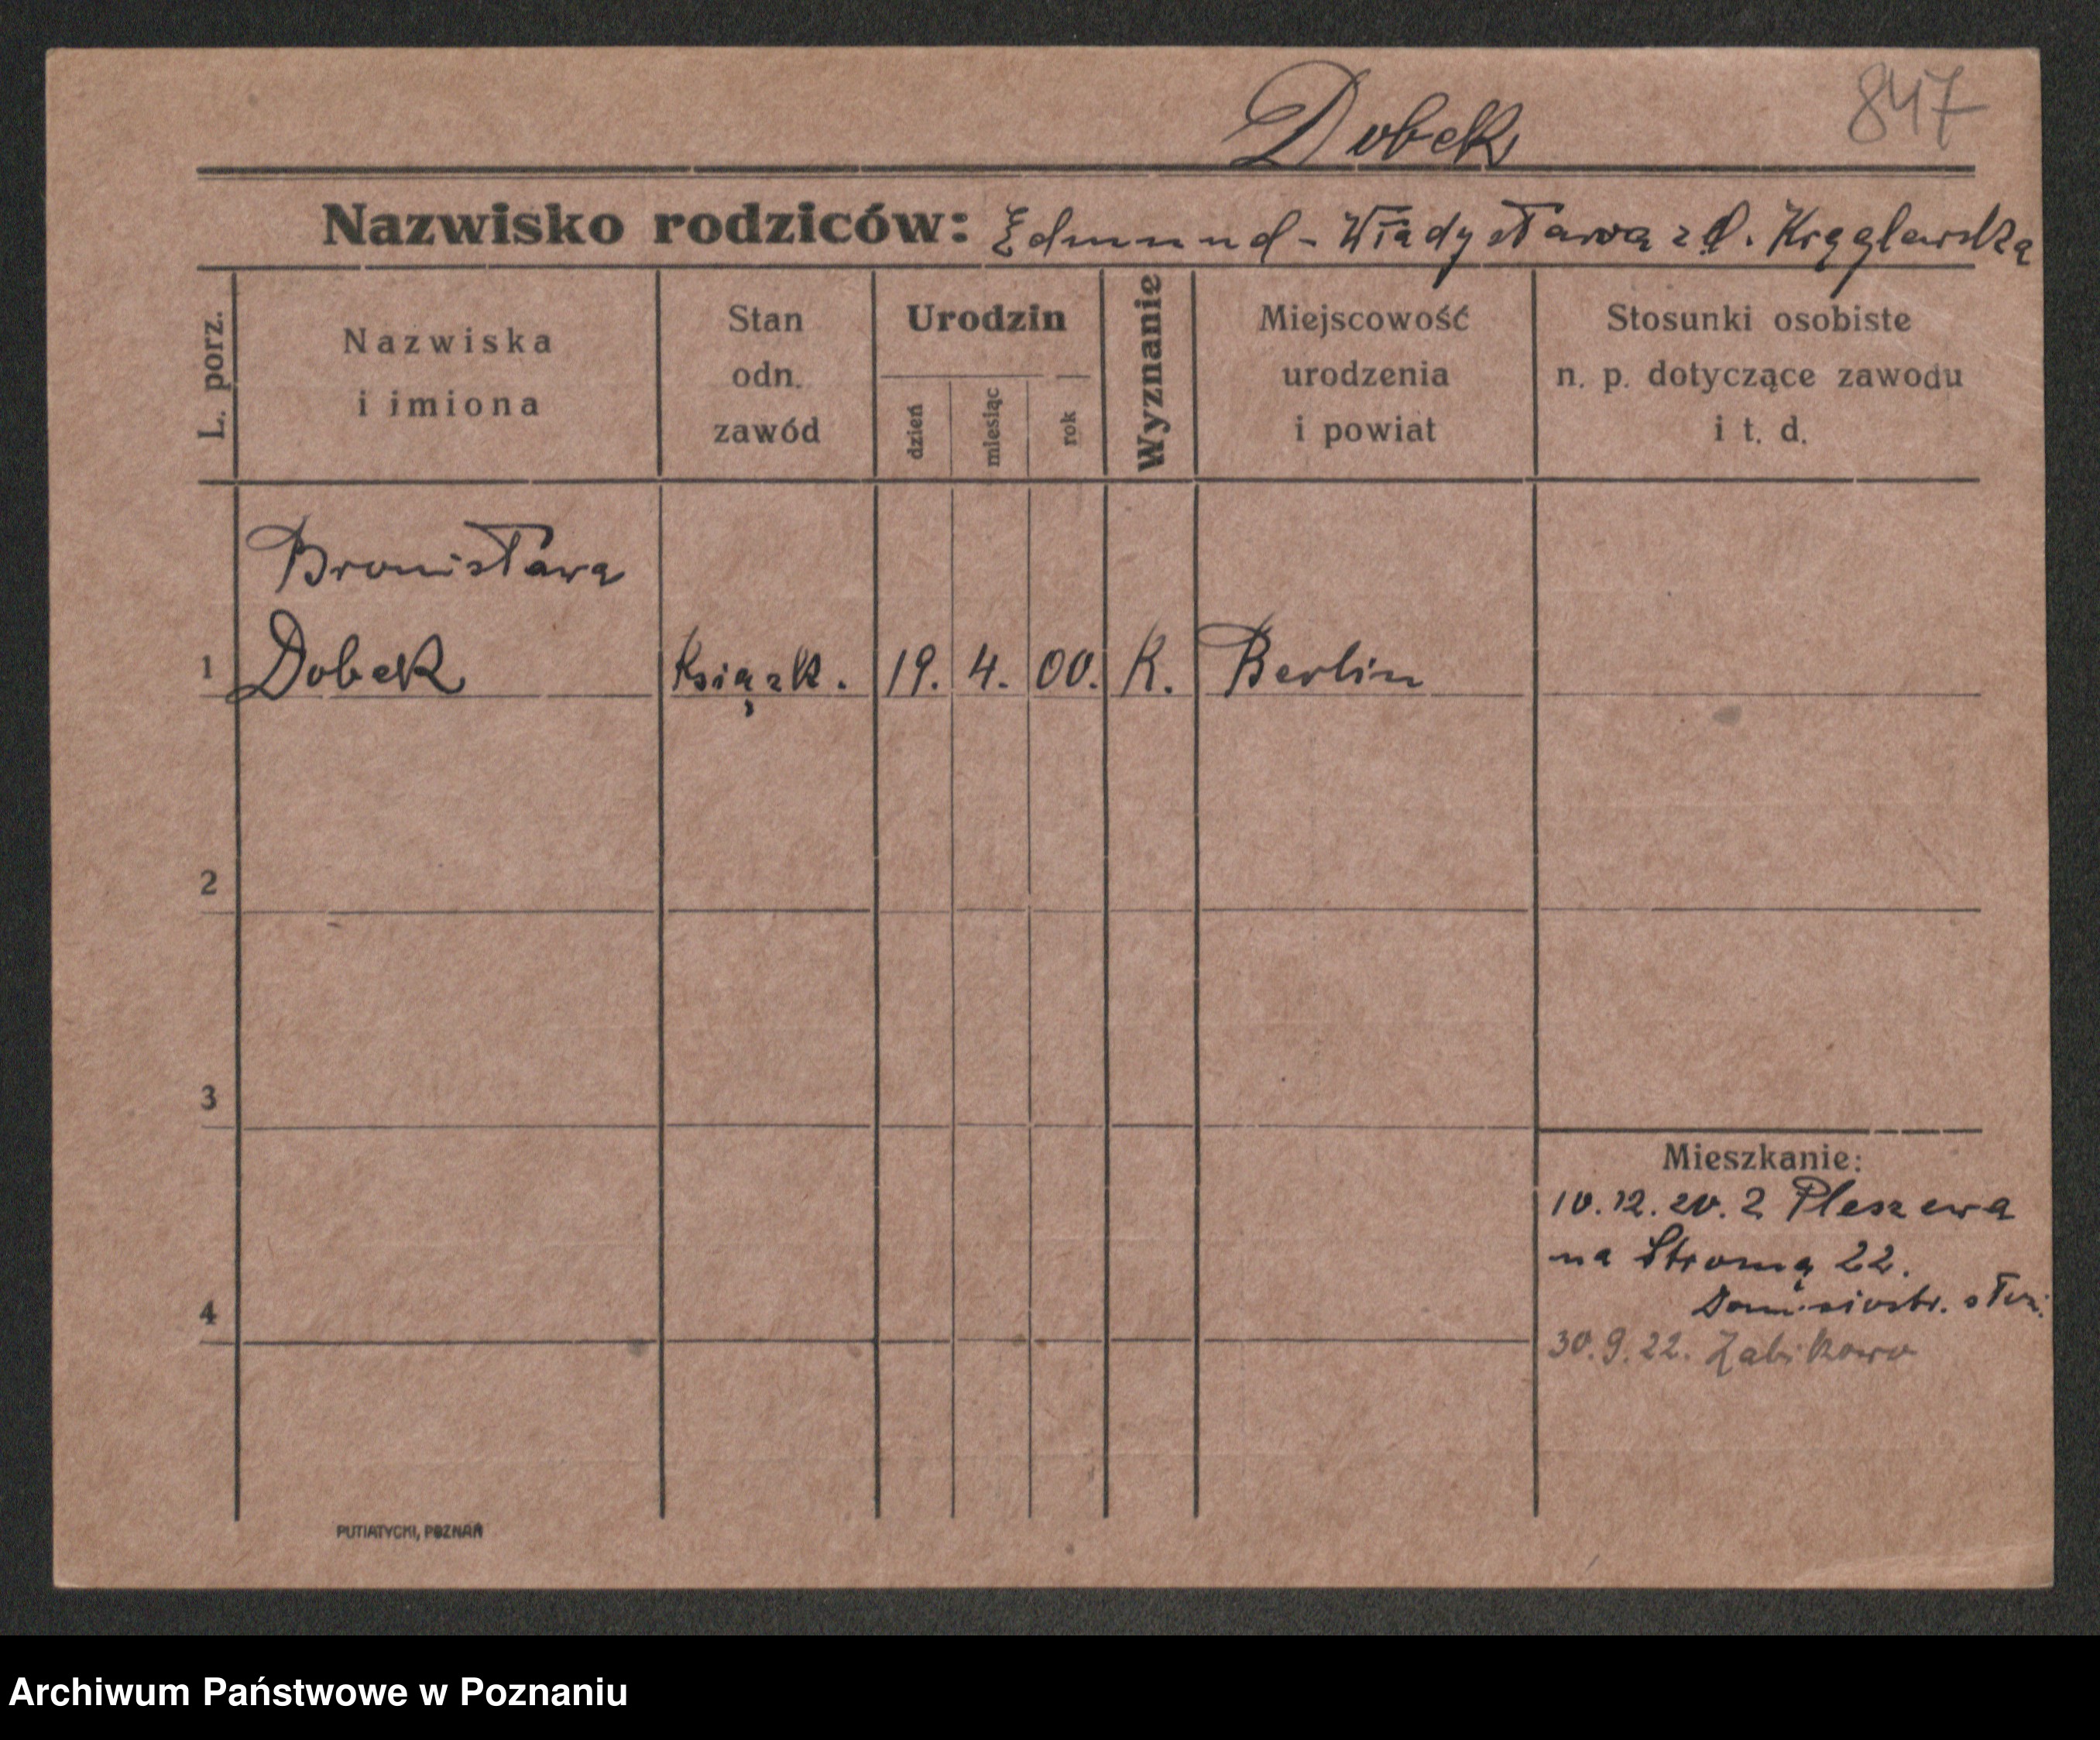 Dobek
847
Nazwisko rodziców: Edmund - Władysława z d. Krąglewska
L. porz.
Nazwiska
i imiona
Stan
odn.
zawód
Urodzin
dzień
miesiąc
rok
Wyznanie
Miejscowość
urodzenia
i powiat
Stosunki osobiste
n. p. dotyczące zawodu
i t. d.
Bronisława
1 Dobek Książk. 19. 4. 00. K. Berlin
2
3
4
Mieszkanie:
10.12.20. z Pleszewa
na Stromą 22.
30.9.22. Żabikowo
PUTIATYCKI, POZNAŃ
Archiwum Państwowe w Poznaniu